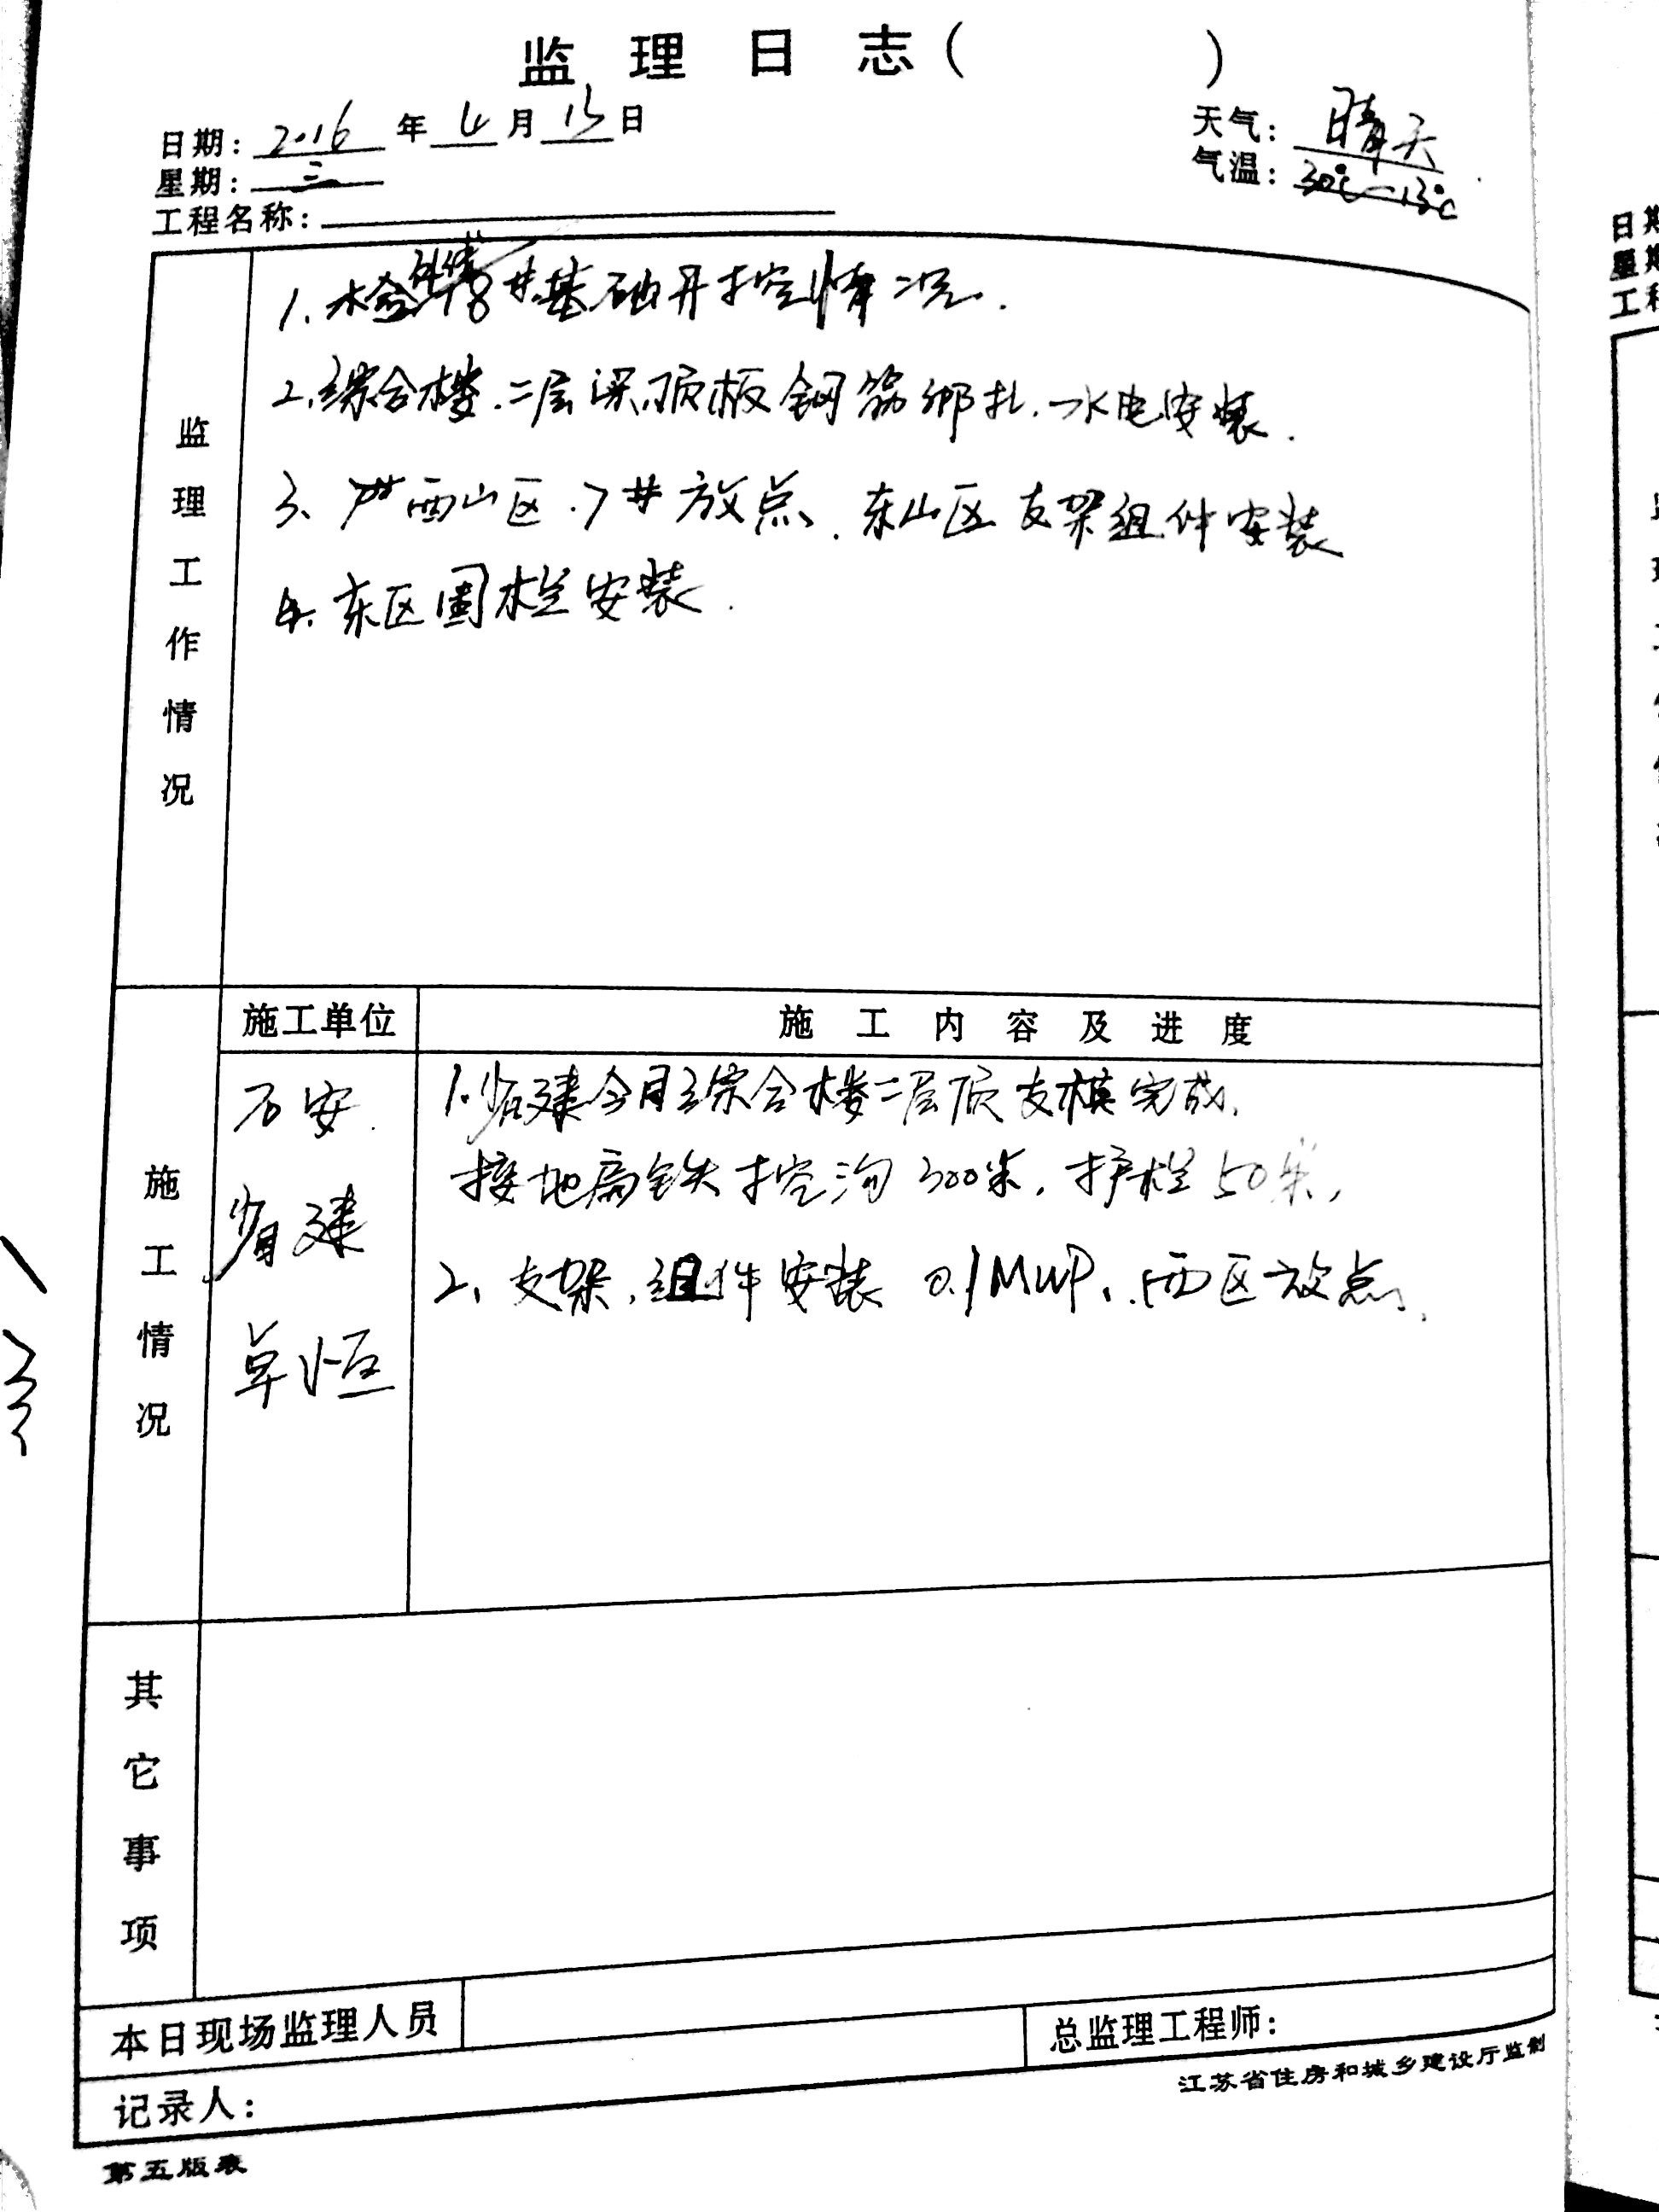 监理日志（ ）
日期：2016年4月13日
天气：晴天
星期：三
气温：30℃—13℃
工程名称：
监理工作情况
1、检查 8#基础开挖情况.
2、综合楼.二层梁顶板钢筋绑扎.水电安装.
3、西山区.7#放点.东山区支架组件安装
4.东区围栏安装.
施工情况
施工单位
施工内容及进度
石安.
省建
卓恒
1.省建今日综合楼二层顶支模完成,
接地扁铁挖沟300米,护栏50米,
2、支架,组件安装0.1MWP,.西区放点.
其它事项
本日现场监理人员
总监理工程师：
记录人：
江苏省住房和城乡建设厅监制
第五版表
日期
星期
工程